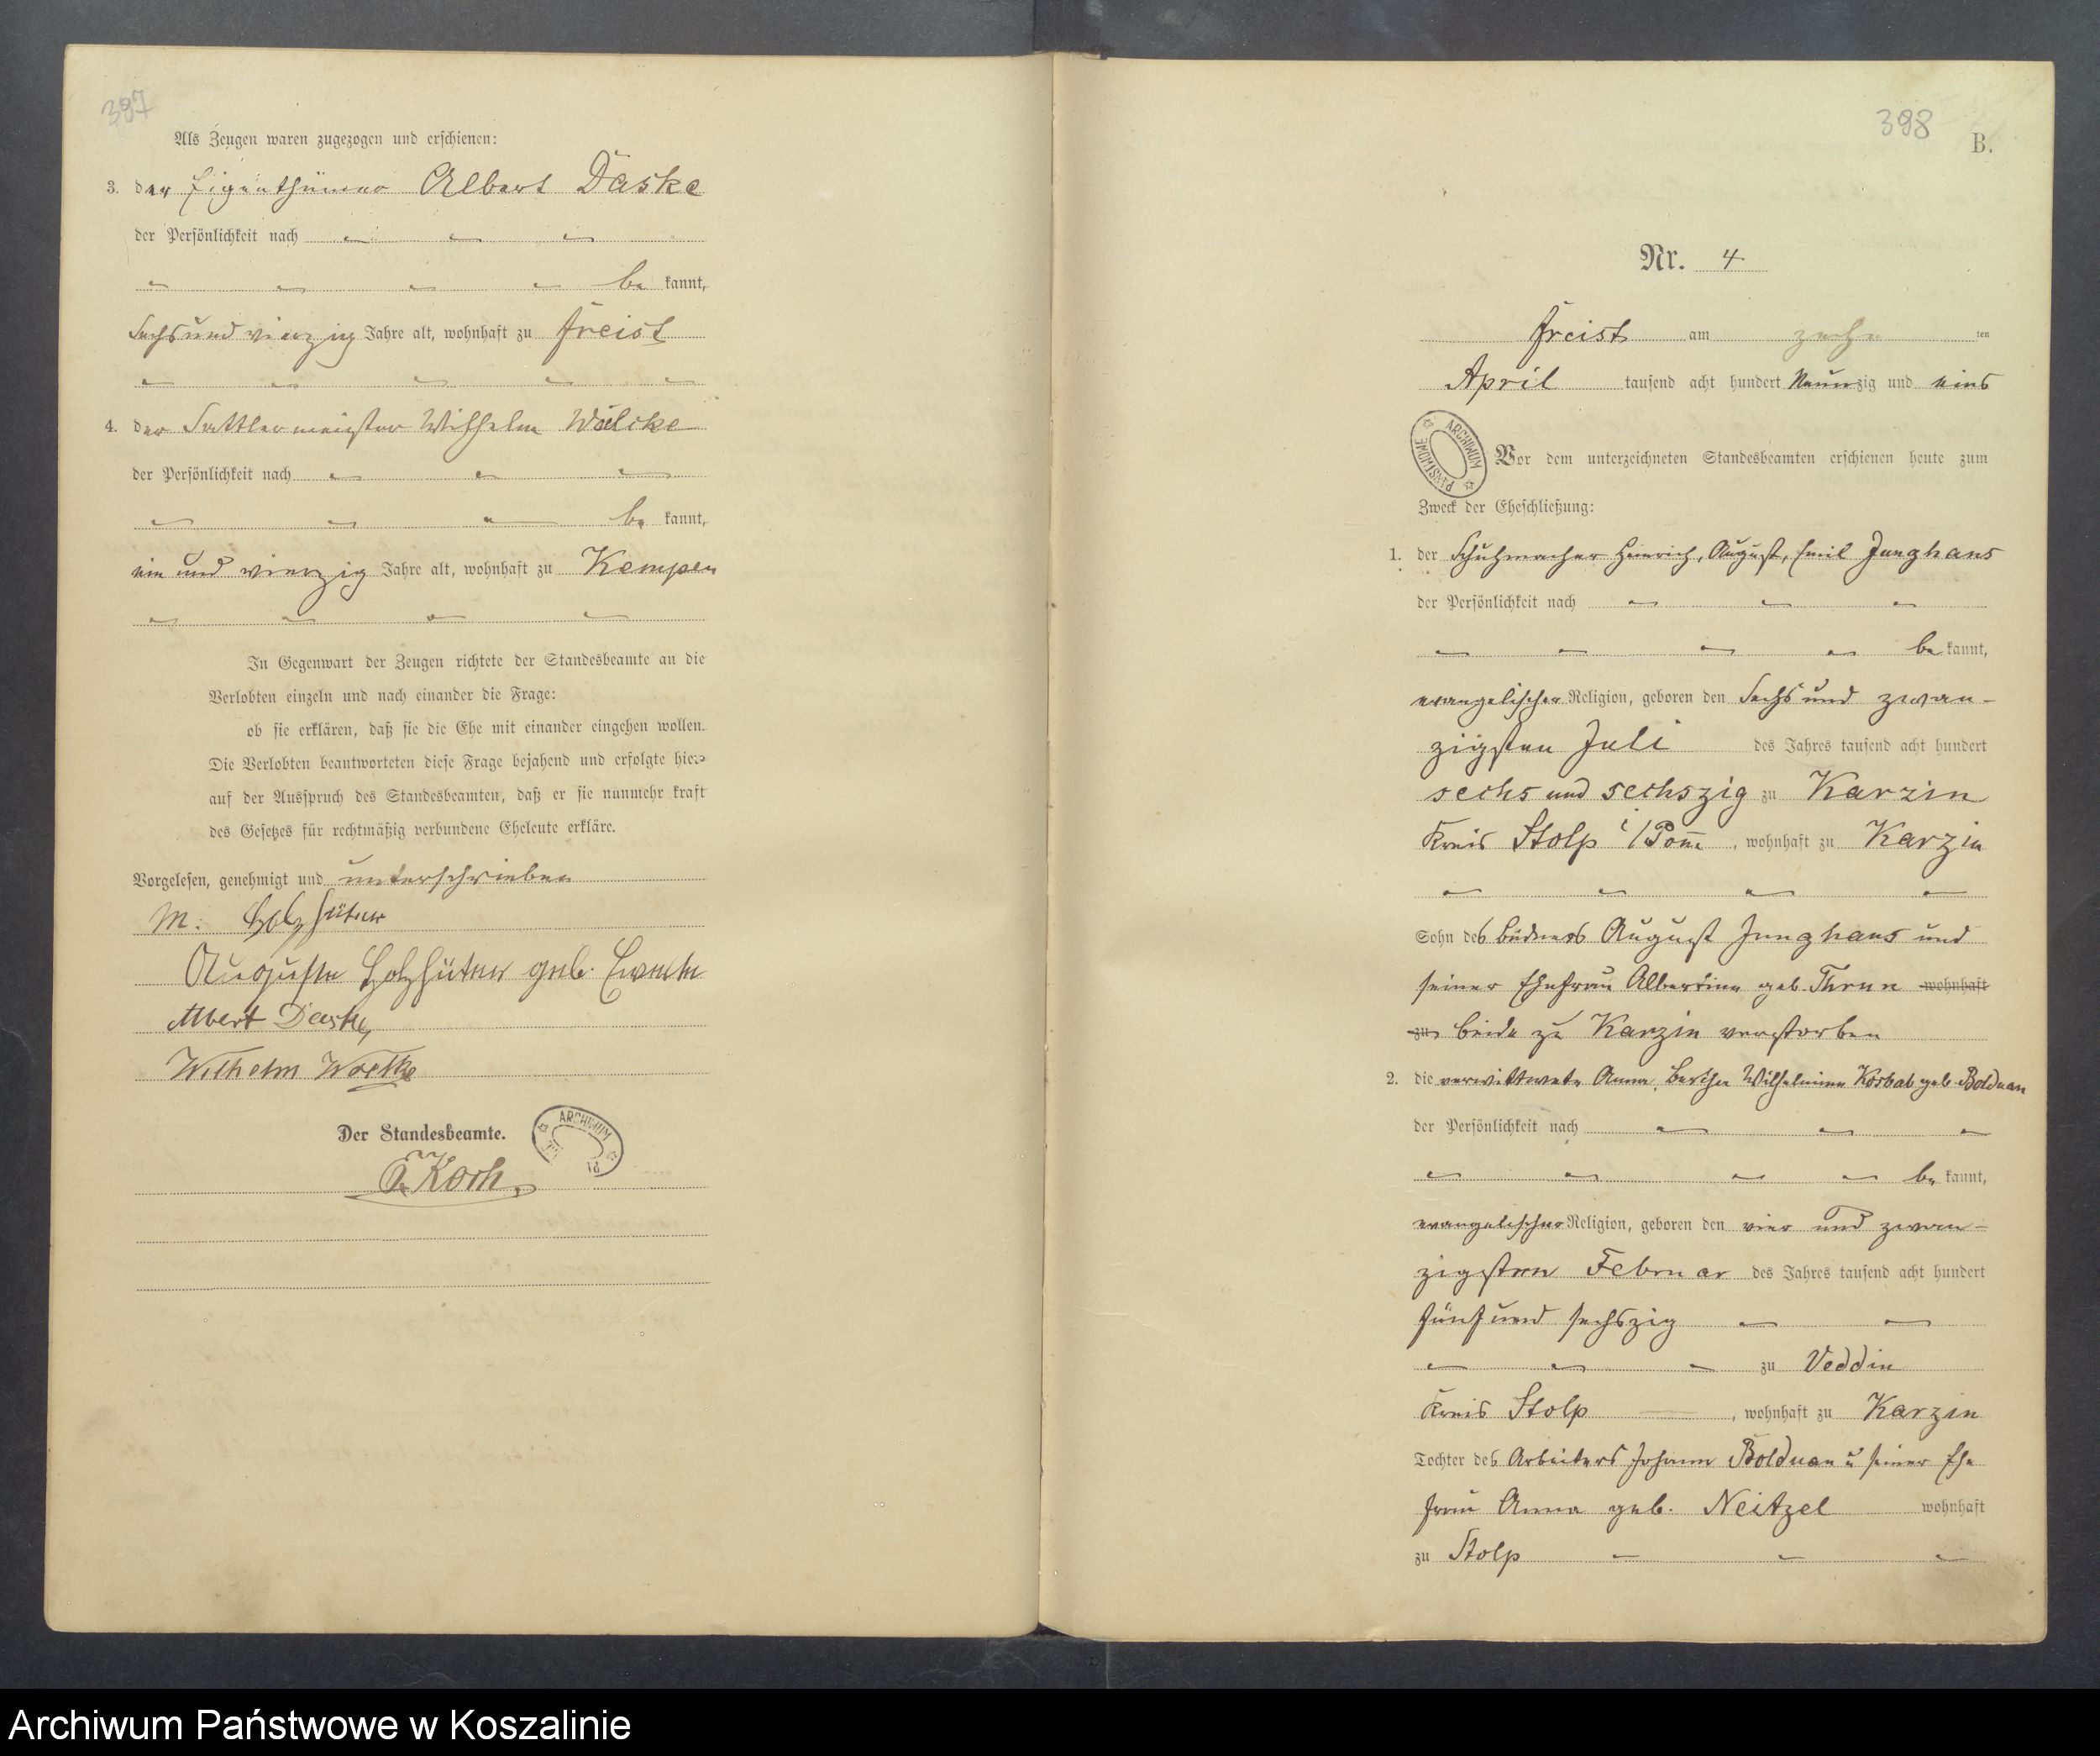 397
Als Zeugen waren zugezogen und erschienen:
3. der Eigenthümer Albert Daske
der Persönlichkeit nach
be kannt,
Sechs und vierzig Jahre alt, wohnhaft zu Freist
4. der Sattlermeister Wilhelm
der Persönlichkeit nach
be kannt,
ein und vierzig Jahre alt, wohnhaft zu Kempen
In Gegenwart der Zeugen richtete der Standesbeamte an die
Verlobten einzeln und nach einander die Frage:
ob sie erklären, daß sie die Ehe mit einander eingehen wollen.
Die Verlobten beantworteten diese Frage bejahend und erfolgte hier-
auf der Ausspruch des Standesbeamten, daß er sie nunmehr kraft
des Gesetzes für rechtmäßig verbundene Eheleute erkläre.
Vorgelesen, genehmigt und unterschrieben
M. Holzhüter
Auguste Holzhüter geb.
Albert Daske
Wilhelm
Der Standesbeamte.
Koch.
ARCHIWUM
398
B.
Nr. 4
Freist am zehn ten
April tausend acht hundert Neunzig und eins
ARCHIWUM PAŃSTWOWE
Vor dem unterzeichneten Standesbeamten erschienen heute zum
Zweck der Eheschließung:
1. der Schuhmacher Heinrich, August, Emil Junghans
der Persönlichkeit nach
be kannt,
evangelischer Religion, geboren den Sechs und zwan-
zigsten Juli des Jahres tausend acht hundert
sechs und sechszig zu Karzin
Kreis Stolp i/Pom̄, wohnhaft zu Karzin
Sohn des Büdners August Junghans und
seiner Ehefrau Albertine geb. Thrun wohnhaft
zu beide zu Karzin verstorben
2. die verwittwete Anna, Bertha Wilhelmine Kosbab geb. Bolduan
der Persönlichkeit nach
be kannt,
evangelischer Religion, geboren den vier und zwan-
zigsten Februar des Jahres tausend acht hundert
fünf und sechszig
zu Veddin
Kreis Stolp, wohnhaft zu Karzin
Tochter des Arbeiters Johann Bolduan u seiner Ehe
frau Anna geb. Neitzel wohnhaft
zu Stolp
Archiwum Państwowe w Koszalinie